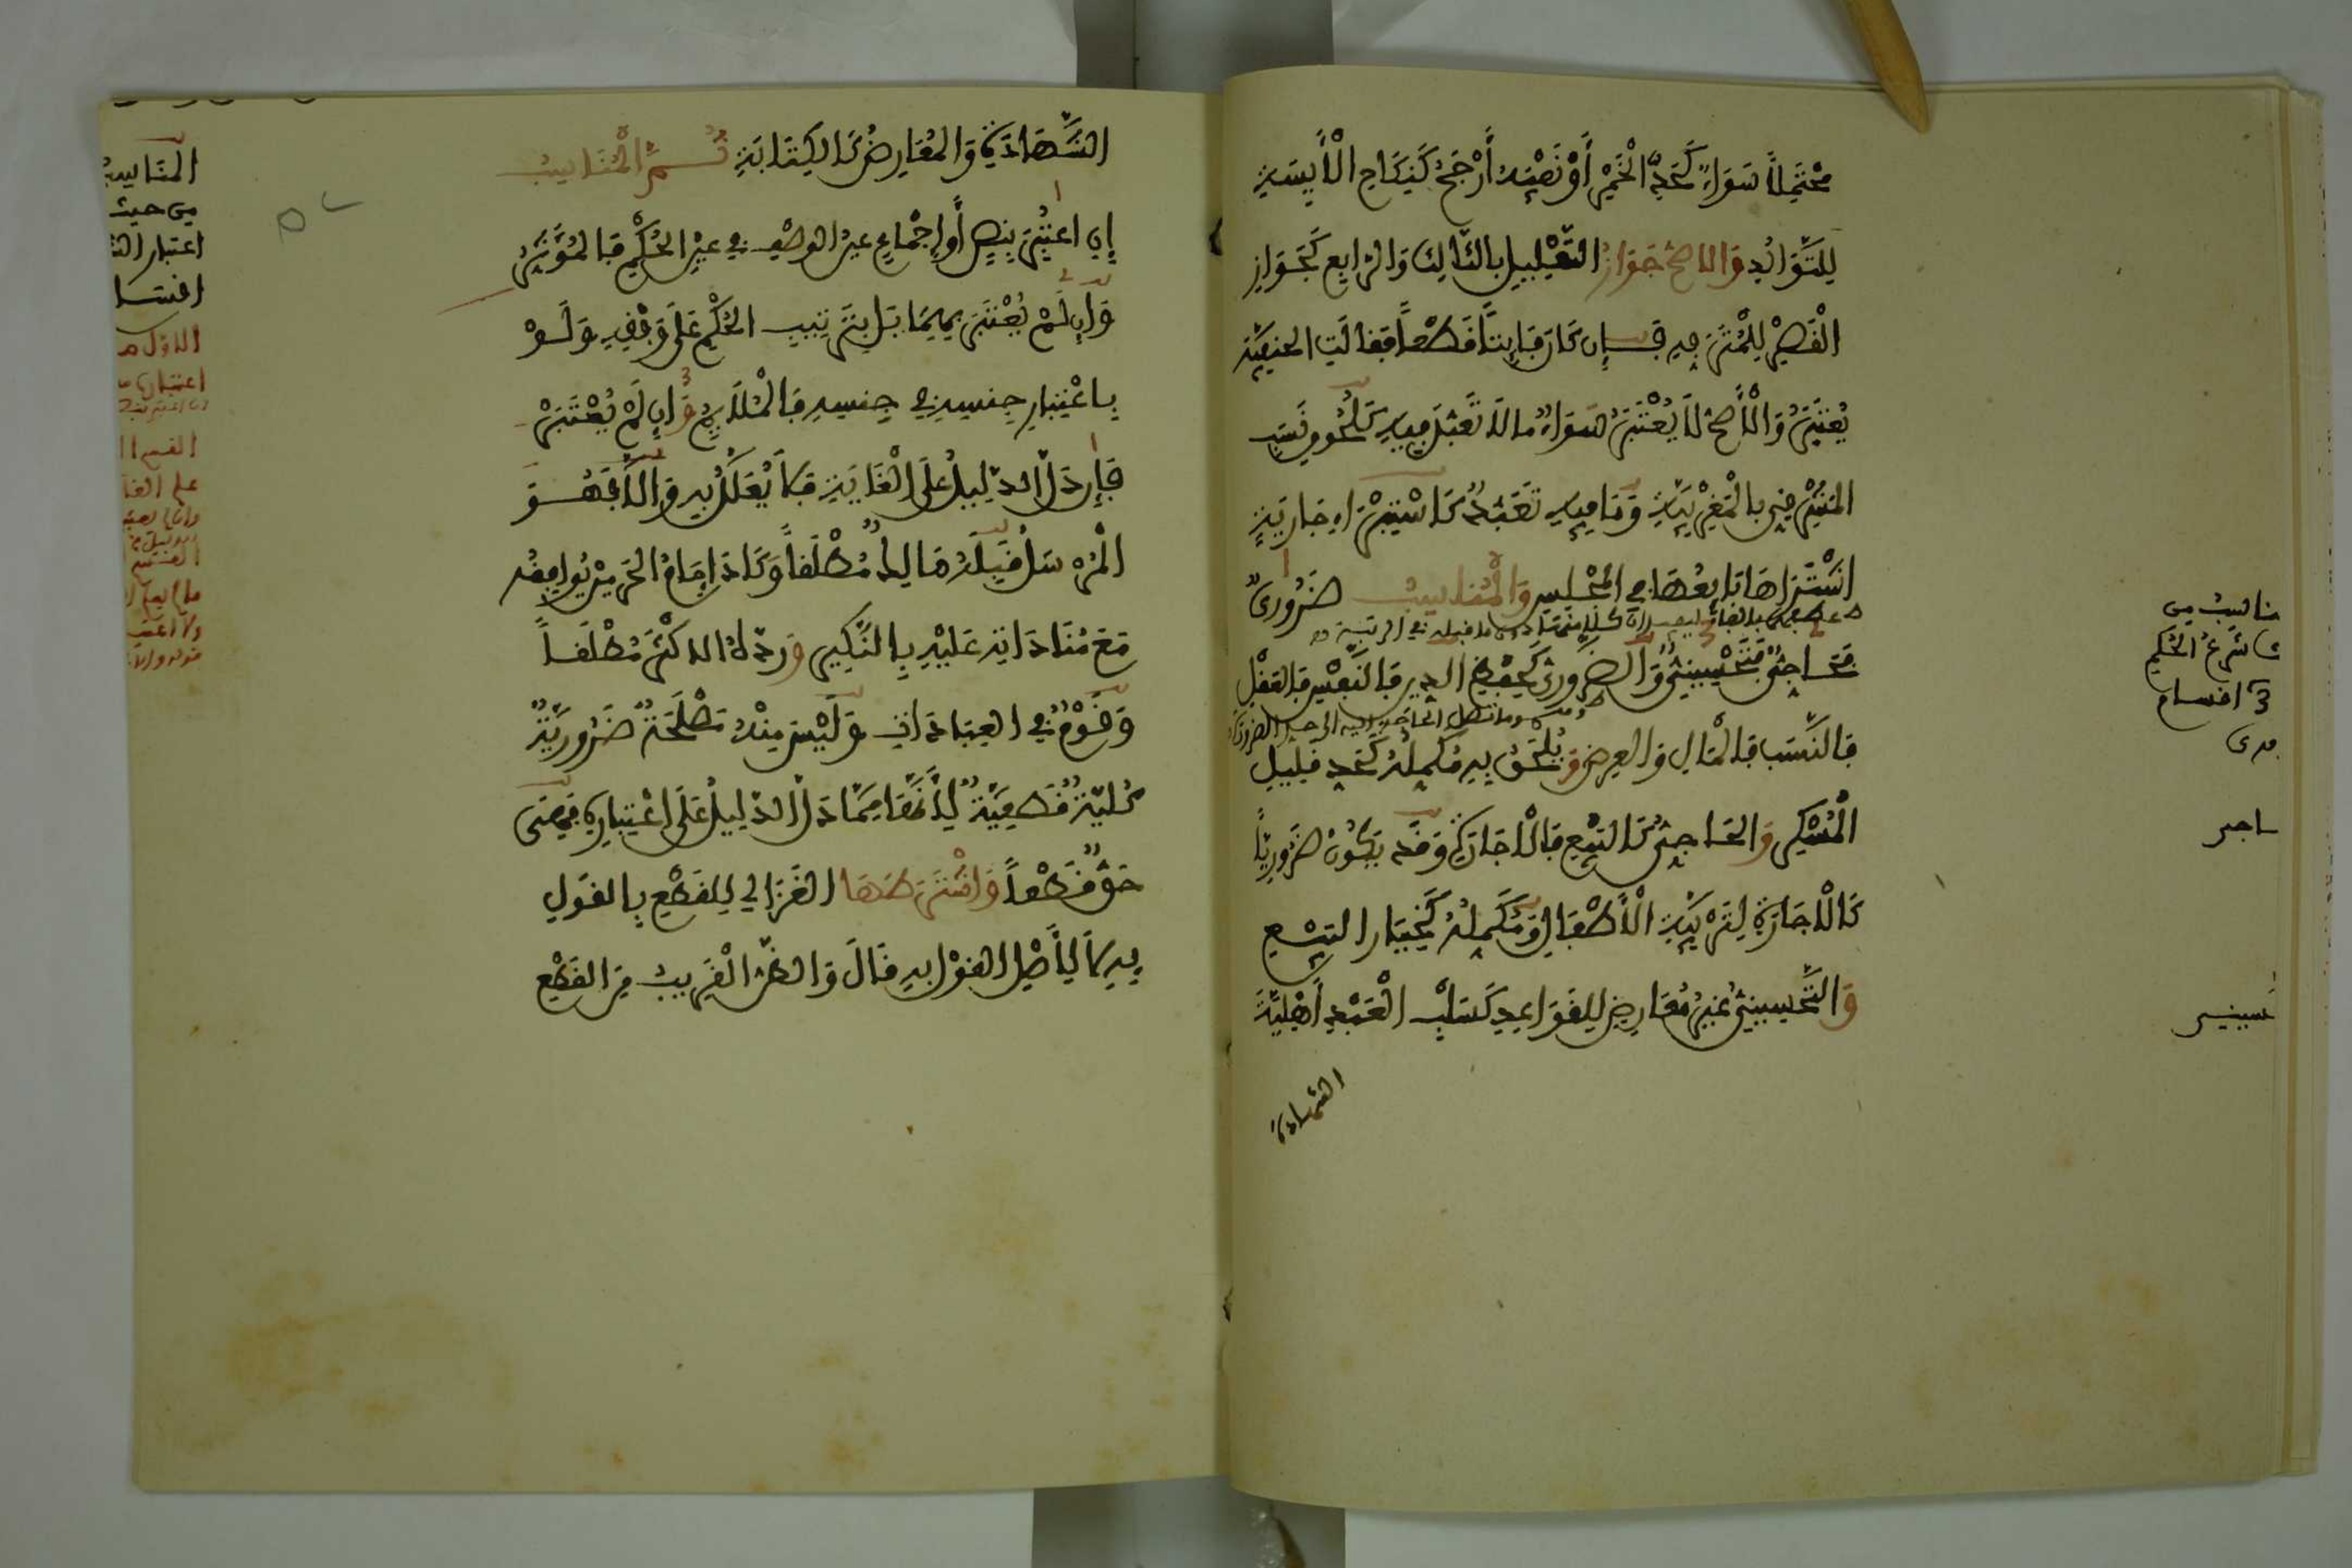 مُحْتَمِلًا سَوَاءً كَحَدِّ الْخَمْرِ أَوْ نَفْيُهُ أَرْجَحُ كَنِكَاحِ الْآيِسَةِ
لِلتَّوَالُدِ وَالاصَحُّ جَوَازُ التَّعْلِيلِ بالثَّالِثِ وَالرَّابِعِ كَجَوَازِ
الْقَصْرِ لِلْمُتَرَفِّهِ فَإِن كَانَ فَائِتًا قَطْعًا فَقَالَتِ الحنفِيَّةُ
يُعْتَبَرُ وَالْأَصَحُّ لَا يُعْتَبَرُ سَوَاءٌ مالَا تَعَبُّدَ فِيهِ كَلُحُوقِ نَسَبِ
المَشْرِقِي بالْمَغْرِبِيَّةِ وَمَا فِيهِ تَعَبُّدٌ كَاسْتِبْرَاءِ جَارِيَةٍ
اشْتَرَاهَا بَايِعُهَا فِي الْمَجْلِسِ وَالْمُنَاسِبُ ضَرُورِيٌّ
فَحَاجِيٌّ فَتَحْسِينِيٌّ وَالضَّرُورِيُّ كَحِفْظِ الدِينِ فَالنَّفْسِ فَالعَقْلِ
فَالنَّسَبِ فَالْمَالِ وَالعِرْضِ وَيُلْحَقُ بِهِ مُكَمِّلُهُ كَحَدِّ قَلِيلِ
الْمُسْكِرِ وَالحَاجِيُّ كَالبَيْعِ فَالْاجَارَةِ وَقَدْ يَكُونُ ضَرُورِيًّا
كَالْاجَارَةِ لِتَرْبِيَةِ الْأَطْفَالِ وَمُكَمِّلُهُ كَخِيَارِ البَيْعِ
وَالتَّحْسِينِيُّ غَيْرُ مُعَارِضٍ لِلقَوَاعِدِ كَسَلْبِ الْعَبْدِ أَهْلِيَّةَ
الشهادة
مناسب من
شرع الحُكم
3 اقسام
الشَّهَادَةِ وَالمُعَارِضُ كَالكِتَابَةِ ثُمَّ الْمُنَاسِبُ
إِنِ اعْتُبِرَ بِنَصٍّ أَوِ إجْمَاعٍ عَيْنُ الوصْفِ فِي عَيْنِ الحُكْمِ فَالمُؤَثِّرُ
وَإِن لَمْ يُعْتَبَرْ بِهِمَا بَلْ بِتَرْتِيبِ الحُكْمِ عَلَى وَفْقِهِ وَلَوْ
بِاعْتِبَارِ جِنسِهِ فِي جِنسِهِ فَالْمُلَائِمُ وَإِن لَمْ يُعْتَبَرْ
فَإِن دَلَّ الدلِيلُ عَلَى الْغَايِهِ فَلَا يُعَلَّلُ بِهِ وَإِلَّا فَهُوَ
الْمُرْسَلُ قَبِلَهُ مَالِكٌ مُطْلَقًا وَكَادَ إِمَامُ الحَرَمَيْنِ يُوافِقُهُ
مَعَ مُنَادَاتِهِ عَلَيْهِ بِالنَّكِيرِ وَرَدَّهُ الاكْثَرُ مُطْلَقاً
وَقَوْمٌ فِي العِبَادَاتِ وَلَيْسَ مِنْهُ مَصْلَحَةٌ ضَرُورِيَّةٌ
كُلِّيَّةٌ قَطْعِيَّةٌ لِأَنَّهَا مِمَّا دَلَّ الدلِيلُ عَلَى اعْتِبَارِهِ فَهِيَ
حَقٌّ قَطْعاً وَاشْتَرَطَهَا الغَزَالِي لِلقَطْعِ بِالقَوْلِ
بِهِ لَا لِأَصْلِ القَوْلِ بِهِ قَالَ وَالظَّنُّ الْقَرِيبُ مِنَ القَطْعِ
المناسب
من حيث
اعتبار
اقسا
الاول
اعتبار
القسم